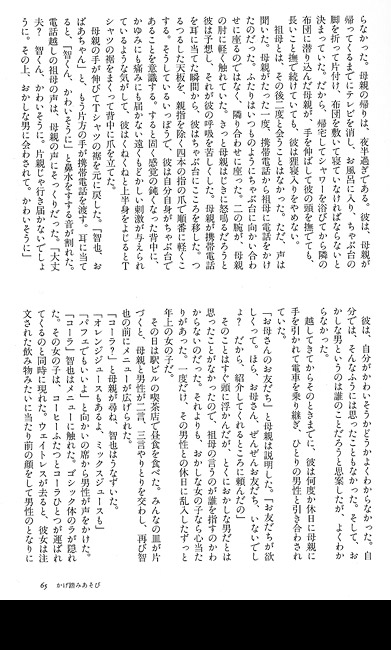 らなかった。母親の帰りは、夜半過ぎである。彼は、母親が
帰ってくるまでにテレビを消し、お風呂に入り、ちゃぶ台の
脚を折って片付け、布団を敷いて寝ていなければならないと
決まっていた。だから、帰宅してシャワーを浴びてから隣の
布団に潜り込んだ母親が、手を伸ばして彼の頭を撫でても、
長いこと撫で続けていても、彼は狸寝入りをやめない。
祖母とは、その後二度と会うことはなかった。だが、声は
聞いた。母親がたった一度、携帯電話から祖母に電話をかけ
たのだった。ふたりはいつものようにちゃぶ台に向かい合わ
せに座るのではなく、隣り合わせに座った。二の腕が、母親
の肘に軽く擦れていた。きっと母親はじきに怒鳴るだろうと
彼は予想し、それが彼の呼吸を苦しくした。母親が携帯電話
を耳に当てた瞬間から、彼はちゃぶ台にこころを移した。つ
るつるした天板を、親指を除く四本の指の爪で順番に軽くこ
する。そうしているいっぽうで、彼は自分自身がちゃぶ台で
あることを意識する。すると固く感覚の鈍くなった背中に、
かゆみにも痛みにも届かない遠くもどかしい刺激が与えられ
ているような気がして、彼はくねくねと上半身をよじるとT
シャツの裾をまくって背中に爪を立てた。
母親の手が伸びてTシャツの裾を元に戻した。「智也、お
ばあちゃん」と、もう片方の手が携帯電話を渡す。耳に当て
ると、「智くん、かわいそうに」と鼻水をすする音が割れた。
電話越しの祖母の声は、母親の声にそっくりだった。「大丈
夫？　智くん、かわいそうに。片親じゃ行き届かないでしょ
うに。その上、おかしな男に会わされて、かわいそうに」
彼は、自分がかわいそうかどうかよくわからなかった。自
分では、そんなふうには思ったこともなかった。そして、お
かしな男というのは誰のことだろうと思案したが、よくわか
らなかった。
越してきてからそのときまでに、彼は何度か休日に母親に
手を引かれて電車を乗り継ぎ、ひとりの男性と引き合わされ
た。
「お母さんのお友だち」と母親は説明した。「お友だちが欲
しくって。ほら、お母さん、ぜんぜんお友だち、いないでし
ょ？　だから、紹介してくれるところに頼んだの」
そのことはすぐ頭に浮かんだが、とくにおかしな男だとは
思ったことがなかったので、祖母の言うのが誰を指すのかわ
からないのだった。それよりも、おかしな女の子なら心当た
りがあった。一度だけ、その男性との休日に乱入したずっと
年上の女の子だ。
その日は駅ビルの喫茶店で昼食を食べた。みんなの皿が片
づくと、母親と男性が二言、三言やりとりを交わし、再び智
也の前にメニューが広げられた。
「コーラ？」と母親が尋ね、智也はうなずいた。
「オレンジジュースもあるよ、ミックスジュースも」
「パフェでもいいよ」と向かいの席から男性が声をかけた。
「コーラ」智也はメニューに触れた。ゴシック体の予が隠れ
た。その女の子は、コーヒーふたつとコーラひとつが運ばれ
てくるのと同時に現れた。ウェイトレスが去ると、彼女は注
文された飲み物みたいに当たり前の顔をして男性のとなりに
65　かげ踏みあそび